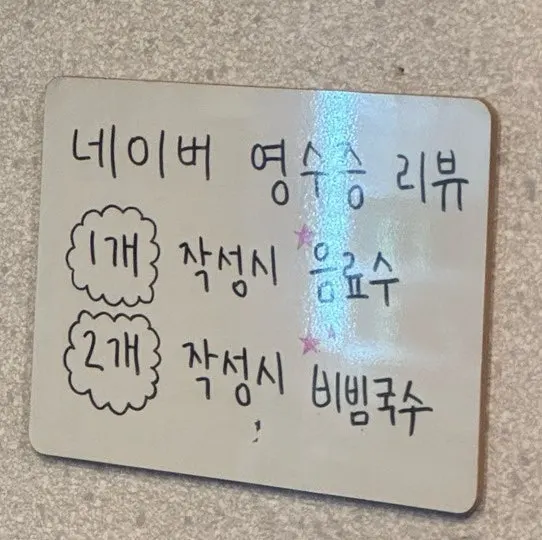 네이버 영수증 리뷰
1개 작성시 음료수
2개 작성시 비빔국수